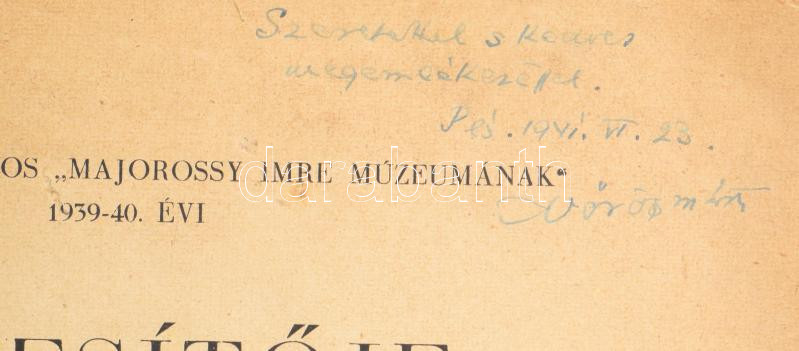 Szeretettel s kedves
megemlékezéssel.
Pécs. 1941. VI. 23.
OS „MAJOROSSY IMRE MÚZEUMÁNAK“
darabanth
1939-40. ÉVI
ESÍTŐJE